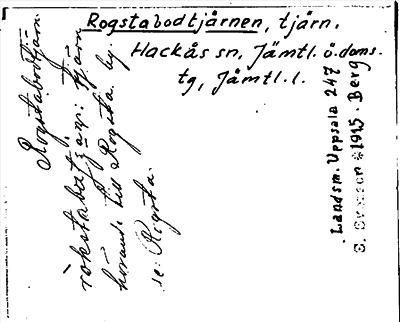 Rogstabodtjärnen, tjärn.
Hackås sn, Jämtl. ö. doms.
tg, Jämtl. l.
Rogstabodtjärn.
tjärn
hörande till Rogsta by.
se: Rogsta.
Landsm. Uppsala 247
1915. Berg